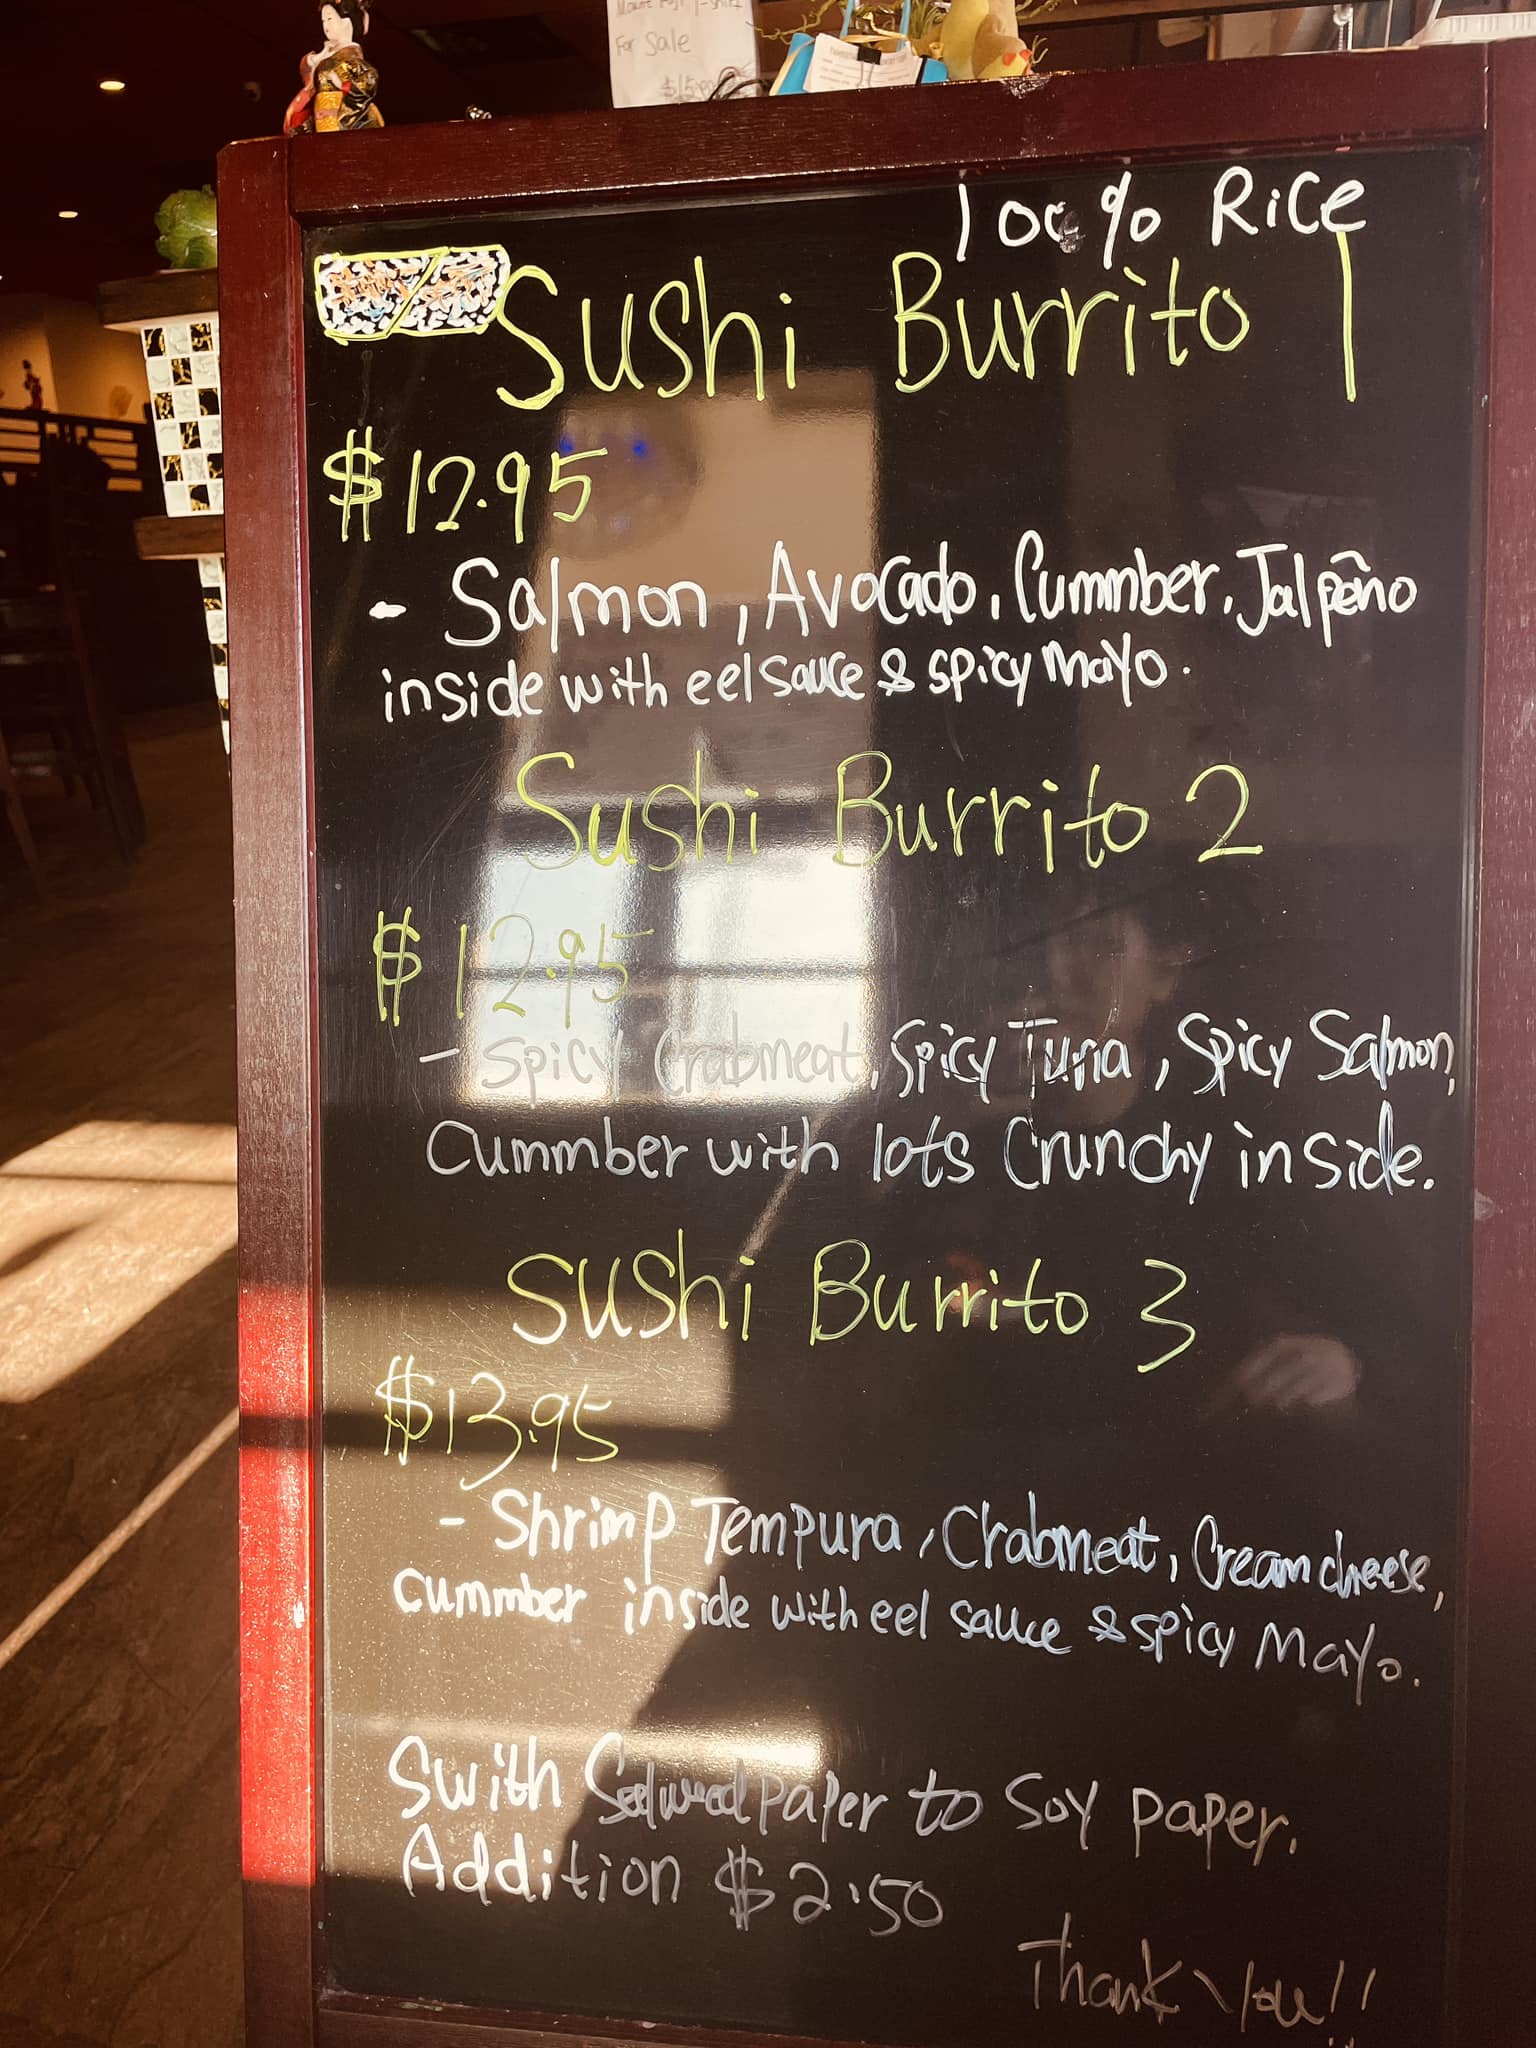 For Sale
$15.00
100% Rice
Sushi Burrito 1
$12.95
- Salmon, Avocado, Cummber, Jalpeño
inside with eel sauce & spicy Mayo.
Sushi Burrito 2
$12.95
- Spicy Crabmeat, Spicy Tuna, Spicy Salmon,
Cummber with lots Crunchy inside.
Sushi Burrito 3
$13.95
- Shrimp Tempura, Crabmeat, Cream cheese,
Cummber inside with eel sauce & spicy Mayo.
Swith Seedweed paper to Soy paper.
Addition $2.50
Thank You!!